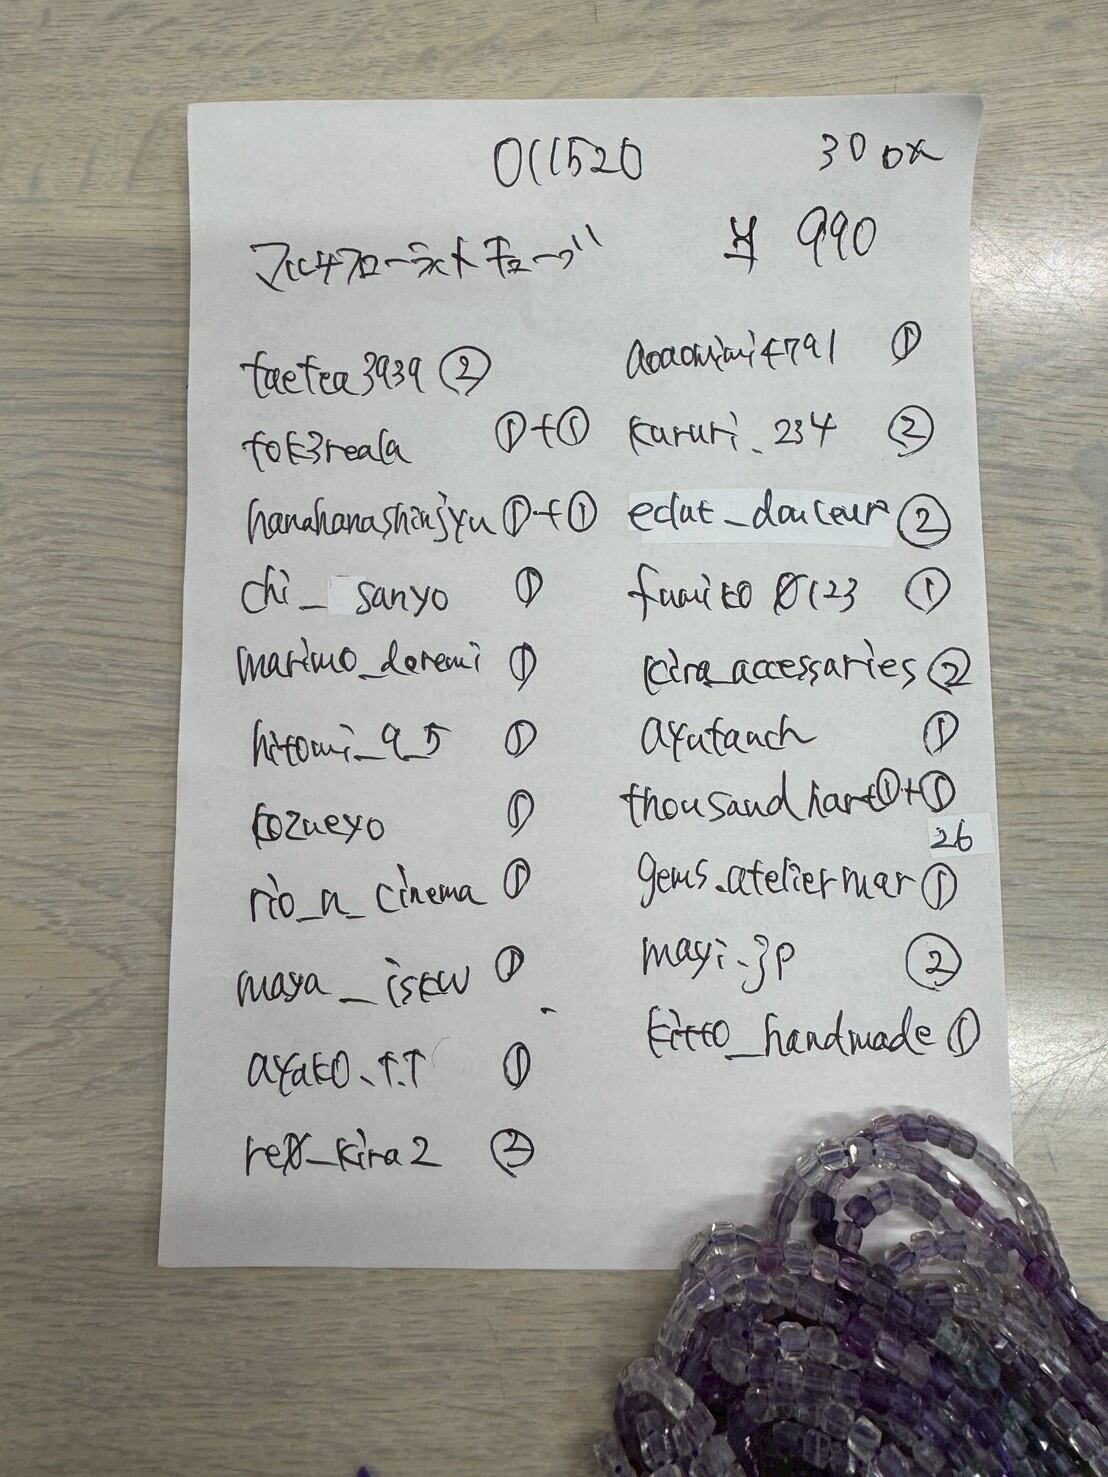 011520
30 px
マルチフローライトキューブ
¥ 990
taetea3939 ②
tok3reala ①+①
hanahanashinjyu ①+①
chi_sanyo ①
marimo_doremi ①
hitomi_9_5 ①
kozueyo ①
rio_n_cinema ①
maya_iskw ①
ayako.t.t ①
re8_kira2 ②
aoaomimi4791 ①
kururi_234 ②
eclat_douceur ②
fumiko0123 ①
kira_accessaries ②
ayutanch ①
thousandhart ①+①
26
gems.ateliermar ①
mayi.jp ②
kitto_handmade ①